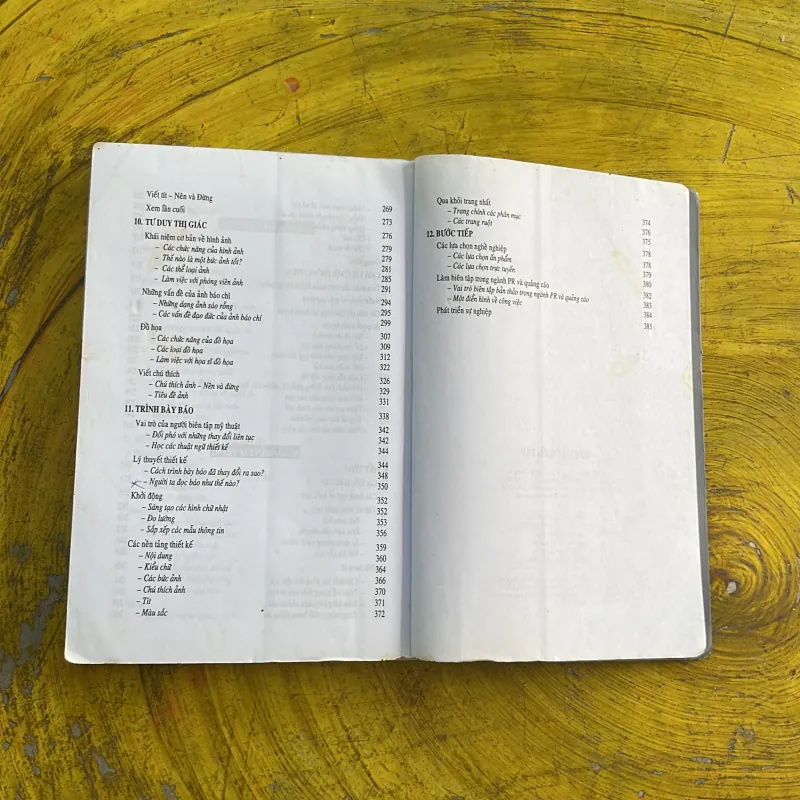 Viết tít – Nên và Đừng 269
Xem lần cuối 273
10. TƯ DUY THỊ GIÁC 276
Khái niệm cơ bản về hình ảnh 279
– Các chức năng của hình ảnh 279
– Thế nào là một bức ảnh tốt? 281
– Các thể loại ảnh 285
– Làm việc với phóng viên ảnh 291
Những vấn đề của ảnh báo chí 294
– Những dạng ảnh sáo rỗng 295
– Các vấn đề đạo đức của ảnh báo chí 299
Đồ họa 307
– Các chức năng của đồ họa 309
– Các loại đồ họa 312
– Làm việc với họa sĩ đồ họa 322
Viết chú thích 326
– Chú thích ảnh – Nên và đừng 329
– Tiêu đề ảnh 331
11. TRÌNH BÀY BÁO 338
Vai trò của người biên tập mỹ thuật 342
– Đối phó với những thay đổi liên tục 342
– Học các thuật ngữ thiết kế 344
Lý thuyết thiết kế 344
– Cách trình bày báo đã thay đổi ra sao? 348
– Người ta đọc báo như thế nào? 350
Khởi động 352
– Sáng tạo các hình chữ nhật 352
– Đo lường 353
– Sắp xếp các mẫu thông tin 356
Các nền tảng thiết kế 359
– Nội dung 360
– Kiểu chữ 364
– Các bức ảnh 366
– Chú thích ảnh 370
– Tít 371
– Màu sắc 372
Qua khỏi trang nhất 374
– Trang chính các phân mục 376
– Các trang ruột 375
12. BƯỚC TIẾP 378
Các lựa chọn nghề nghiệp 378
– Các lựa chọn ấn phẩm 379
– Các lựa chọn trực tuyến 380
Làm biên tập trong ngành PR và quảng cáo 382
– Vai trò biên tập bản thảo trong ngành PR và quảng cáo 383
– Một điển hình về công việc 384
Phát triển sự nghiệp 385